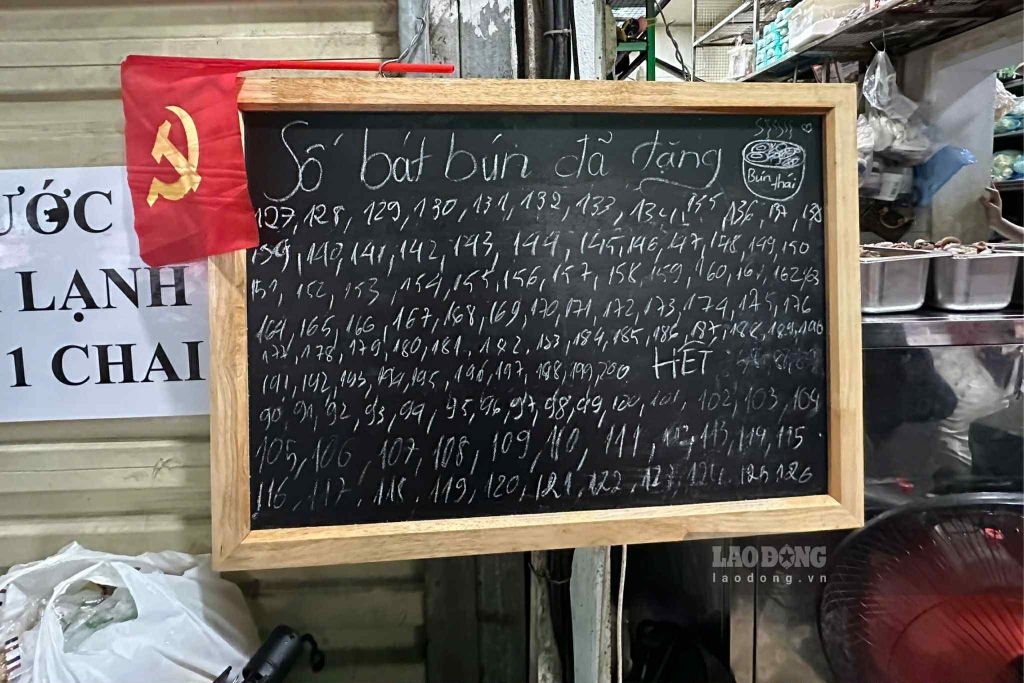 Số bát bún đã dặng
Bún thái
127, 128, 129, 130, 131, 132, 133, 134, 135, 136, 137, 138
139, 140, 141, 142, 143, 144, 145, 146, 147, 148, 149, 150
151, 152, 153, 154, 155, 156, 157, 158, 159, 160, 161, 162, 163
164, 165, 166, 167, 168, 169, 170, 171, 172, 173, 174, 175, 176
177, 178, 179, 180, 181, 182, 183, 184, 185, 186, 187, 188, 189, 190
191, 192, 193, 194, 195, 196, 197, 198, 199, 200 HẾT
90, 91, 92, 93, 94, 95, 96, 97, 98, 99, 100, 101, 102, 103, 104
105, 106, 107, 108, 109, 110, 111, 112, 113, 114, 115
116, 117, 118, 119, 120, 121, 122, 123, 124, 125, 126
ƯỚC
LẠNH
1 CHAI
LAO ĐỘNG
laodong.vn